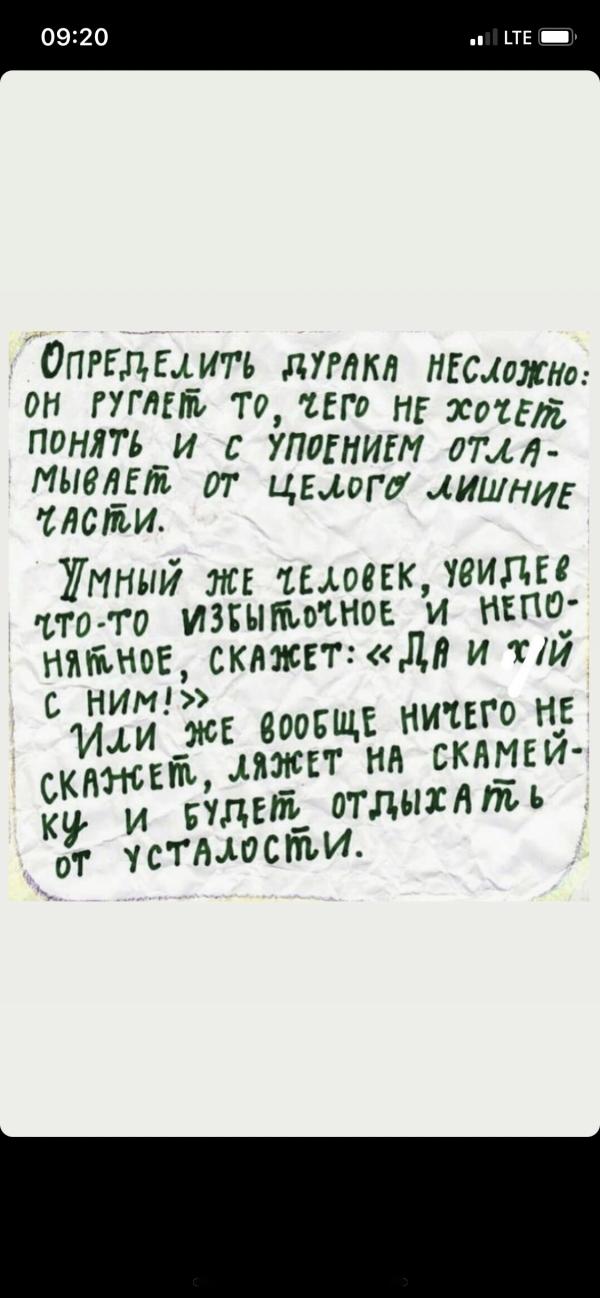 09:20
LTE
Определить дурака несложно:
он ругает то, чего не хочет
понять и с упоением отла-
мывает от целого лишние
части.
Умный же человек, увидев
что-то избыточное и непо-
нятное, скажет: «Да и
с ним!»
Или же вообще ничего не
скажет, ляжет на скамей-
ку и будет отдыхать
от усталости.